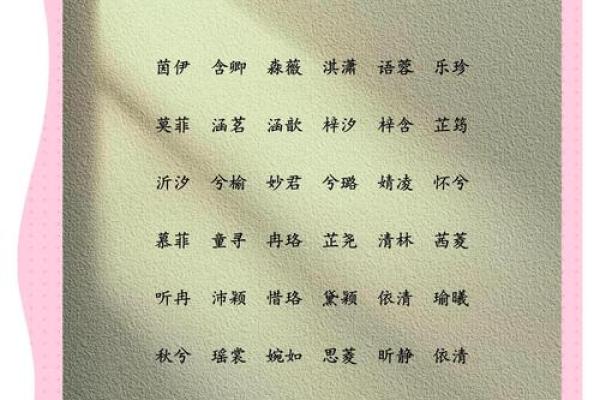 茵伊 含卿 淼薇 淇潇 语蓉 乐珍
莫菲 涵茗 涵歆 梓汐 梓含 芷筠
沂汐 兮榆 妙君 兮璐 婧凌 怀兮
慕菲 童寻 冉珞 芷尧 清林 茜菱
听冉 沛颖 惜珞 黛颖 依清 瑜曦
秋兮 瑶裳 婉如 思菱 昕静 依清